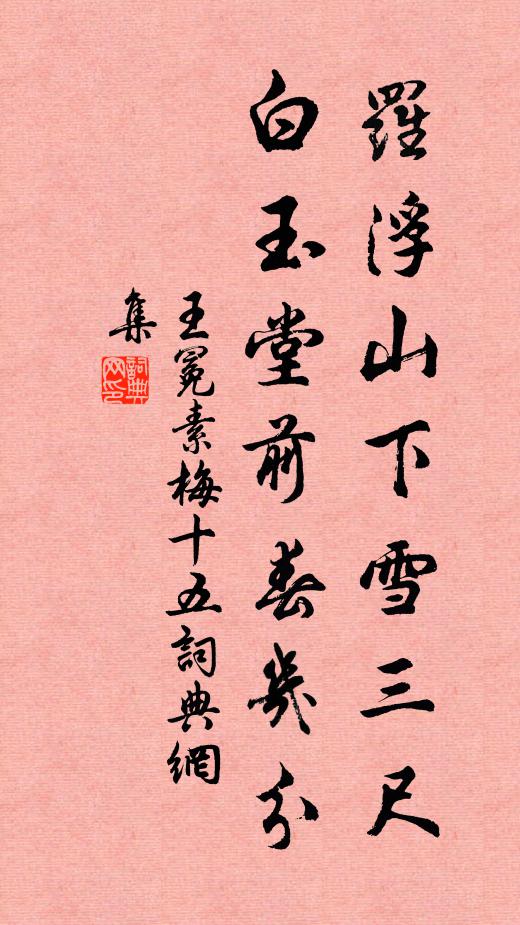 羅浮山下雪三尺
白玉堂前春幾分
王冕素梅十五詞典網
集
詞典
网印